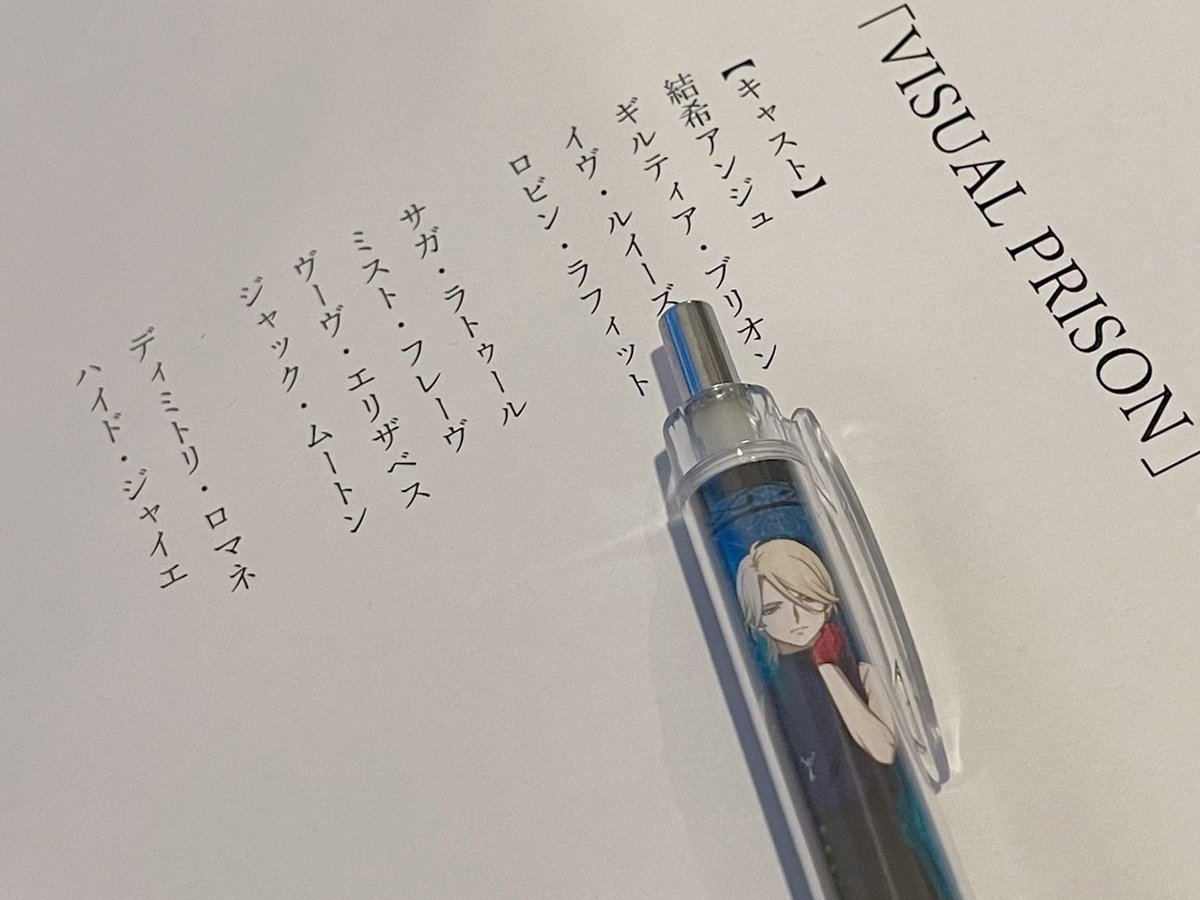 「VISUAL PRISON」
【キャスト】
結希アンジュ
ギルティア・ブリオン
イヴ・ルイーズ
ロビン・ラフィット
サガ・ラトゥール
ミスト・フレーヴ
ヴーヴ・エリザベス
ジャック・ムートン
ディミトリ・ロマネ
ハイド・ジャイエ